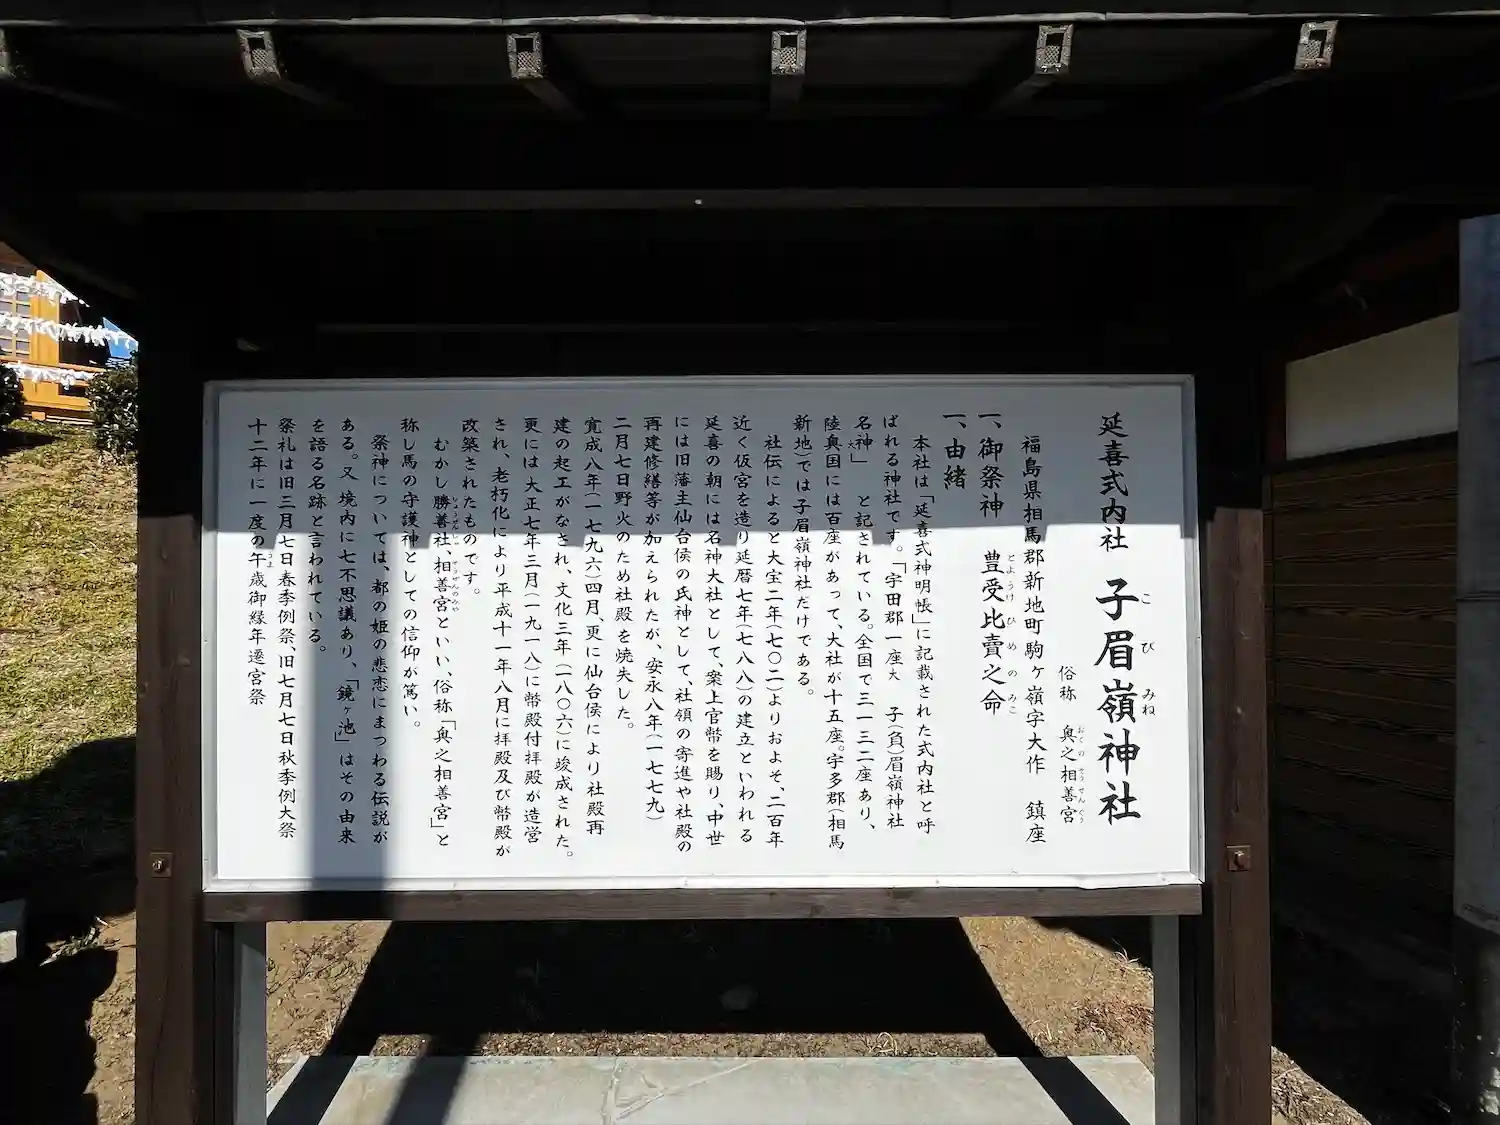 延喜式内社 子眉嶺神社
こ び みね
俗称 奥之相善宮
おくの そうぜんぐう
福島県相馬郡新地町駒ヶ嶺字大作 鎮座
一、御祭神 豊受比賣之命
とようけ ひ め の みこ
一、由緒
本社は「延喜式神明帳」に記載された式内社と呼
ばれる神社です。「宇田郡一座大 子(負)眉嶺神社
名神大」 と記されている。全国で三一三二座あり、
陸奥国には百座があって、大社が十五座。宇多郡(相馬
新地)では子眉嶺神社だけである。
社伝によると大宝二年(七〇二)よりおよそ、二百年
近く仮宮を造り延暦七年(七八八)の建立といわれる
延喜の朝には名神大社として、案上官幣を賜り、中世
には旧藩主仙台侯の氏神として、社領の寄進や社殿の
再建修繕等が加えられたが、安永八年(一七七九)
二月七日野火のため社殿を焼失した。
寛成八年(一七九六)四月、更に仙台侯により社殿再
建の起工がなされ、文化三年(一八〇六)に竣成された。
更には大正七年三月(一九一八)に幣殿付拝殿が造営
され、老朽化により平成十一年八月に拝殿及び幣殿が
改築されたものです。
むかし勝善社、相善宮といい、俗称「奥之相善宮」と
しょうぜんしゃ そうぜんのみや
称し馬の守護神としての信仰が篤い。
祭神については、都の姫の悲恋にまつわる伝説が
ある。又境内に七不思議あり、「鏡ヶ池」はその由来
を語る名跡と言われている。
祭礼は旧三月七日春季例祭、旧七月七日秋季例大祭
十二年に一度の午歳御縁年遷宮祭
うま